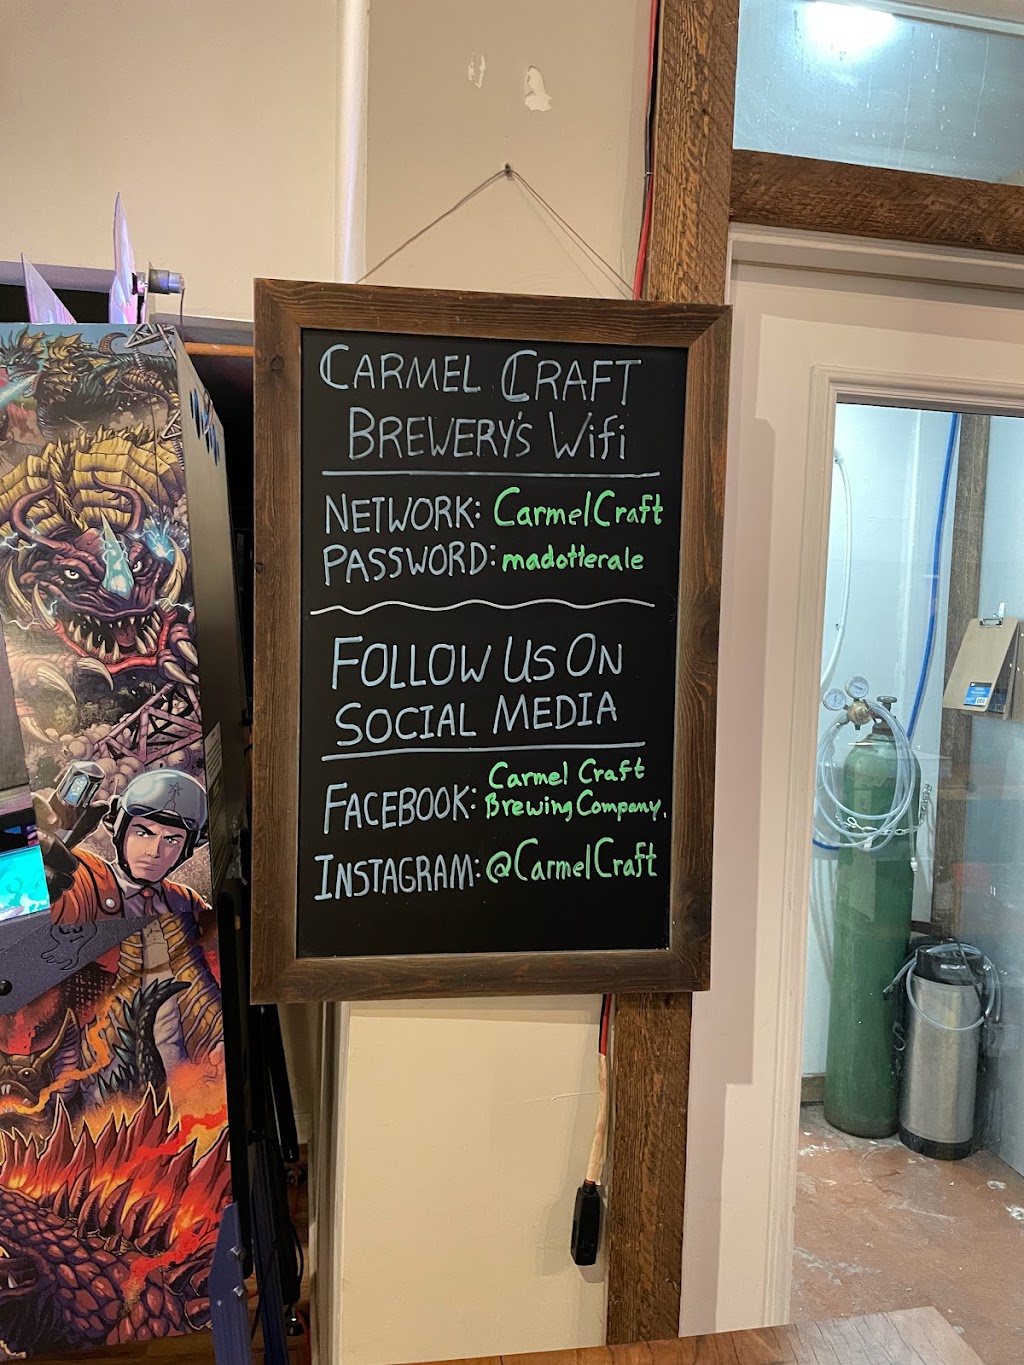 CARMEL CRAFT
BREWERY'S Wifi
NETWORK: CarmelCraft
PASSWORD: madotterale
FOLLOW US ON
SOCIAL MEDIA
FACEBOOK: Carmel Craft
Brewing Company.
INSTAGRAM: @CarmelCraft